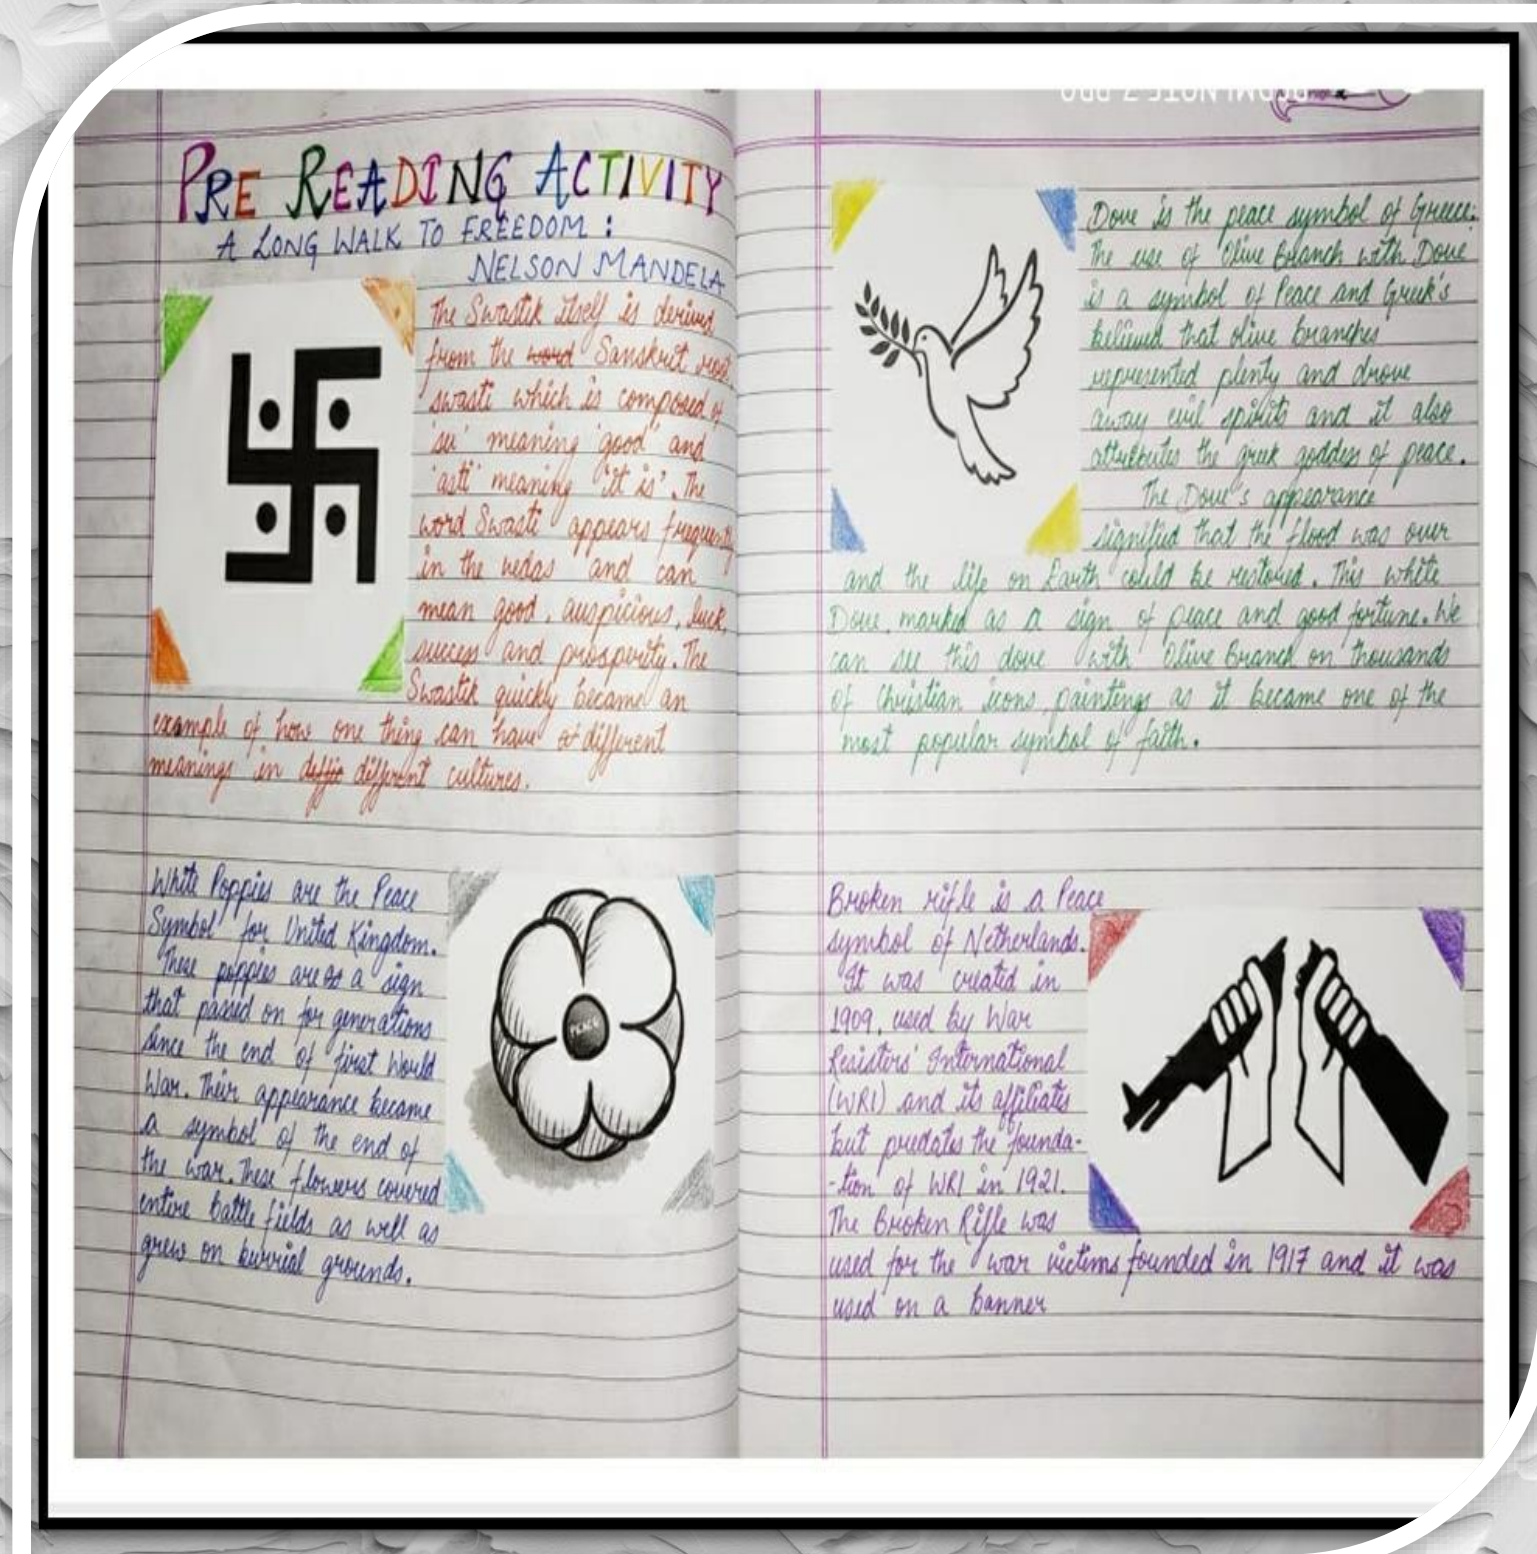 PRE READING ACTIVITY
A LONG WALK TO FREEDOM :
NELSON MANDELA
The Swastik Itself is derived
from the word Sanskrit root
'swasti' which is composed of
'su' meaning 'good' and
'asti' meaning 'it is'. The
word Swasti appears frequently
in the vedas and can
mean good, auspicious, luck,
success and prosperity. The
Swastik quickly became an
example of how one thing can have of different
meanings in different cultures.
White Poppies are the Peace
Symbol for United Kingdom.
These poppies are as a sign
that passed on for generations
since the end of first World
War. Their appearance became
a symbol of the end of
the war. These flowers covered
entire battle fields as well as
grew on burrial grounds.
PEACE
REDMI NOTE 7 PRO
Dove is the peace symbol of Greece.
The use of Olive Branch with Dove
is a symbol of Peace and Greek's
believed that olive branches
represented plenty and drove
away evil spirits and it also
attributes the greek goddess of peace.
The Dove's appearance
signified that the flood was over
and the life on Earth could be restored. This white
Dove, marked as a sign of peace and good fortune. We
can see this dove with Olive Branch on thousands
of Christian icons, paintings as it became one of the
most popular symbol of faith.
Broken rifle is a Peace
symbol of Netherlands.
It was created in
1909, used by War
Resisters' International
(WRI) and its affiliates
but predates the founda-
-tion of WRI in 1921.
The Broken Rifle was
used for the war victims founded in 1917 and it was
used on a banner